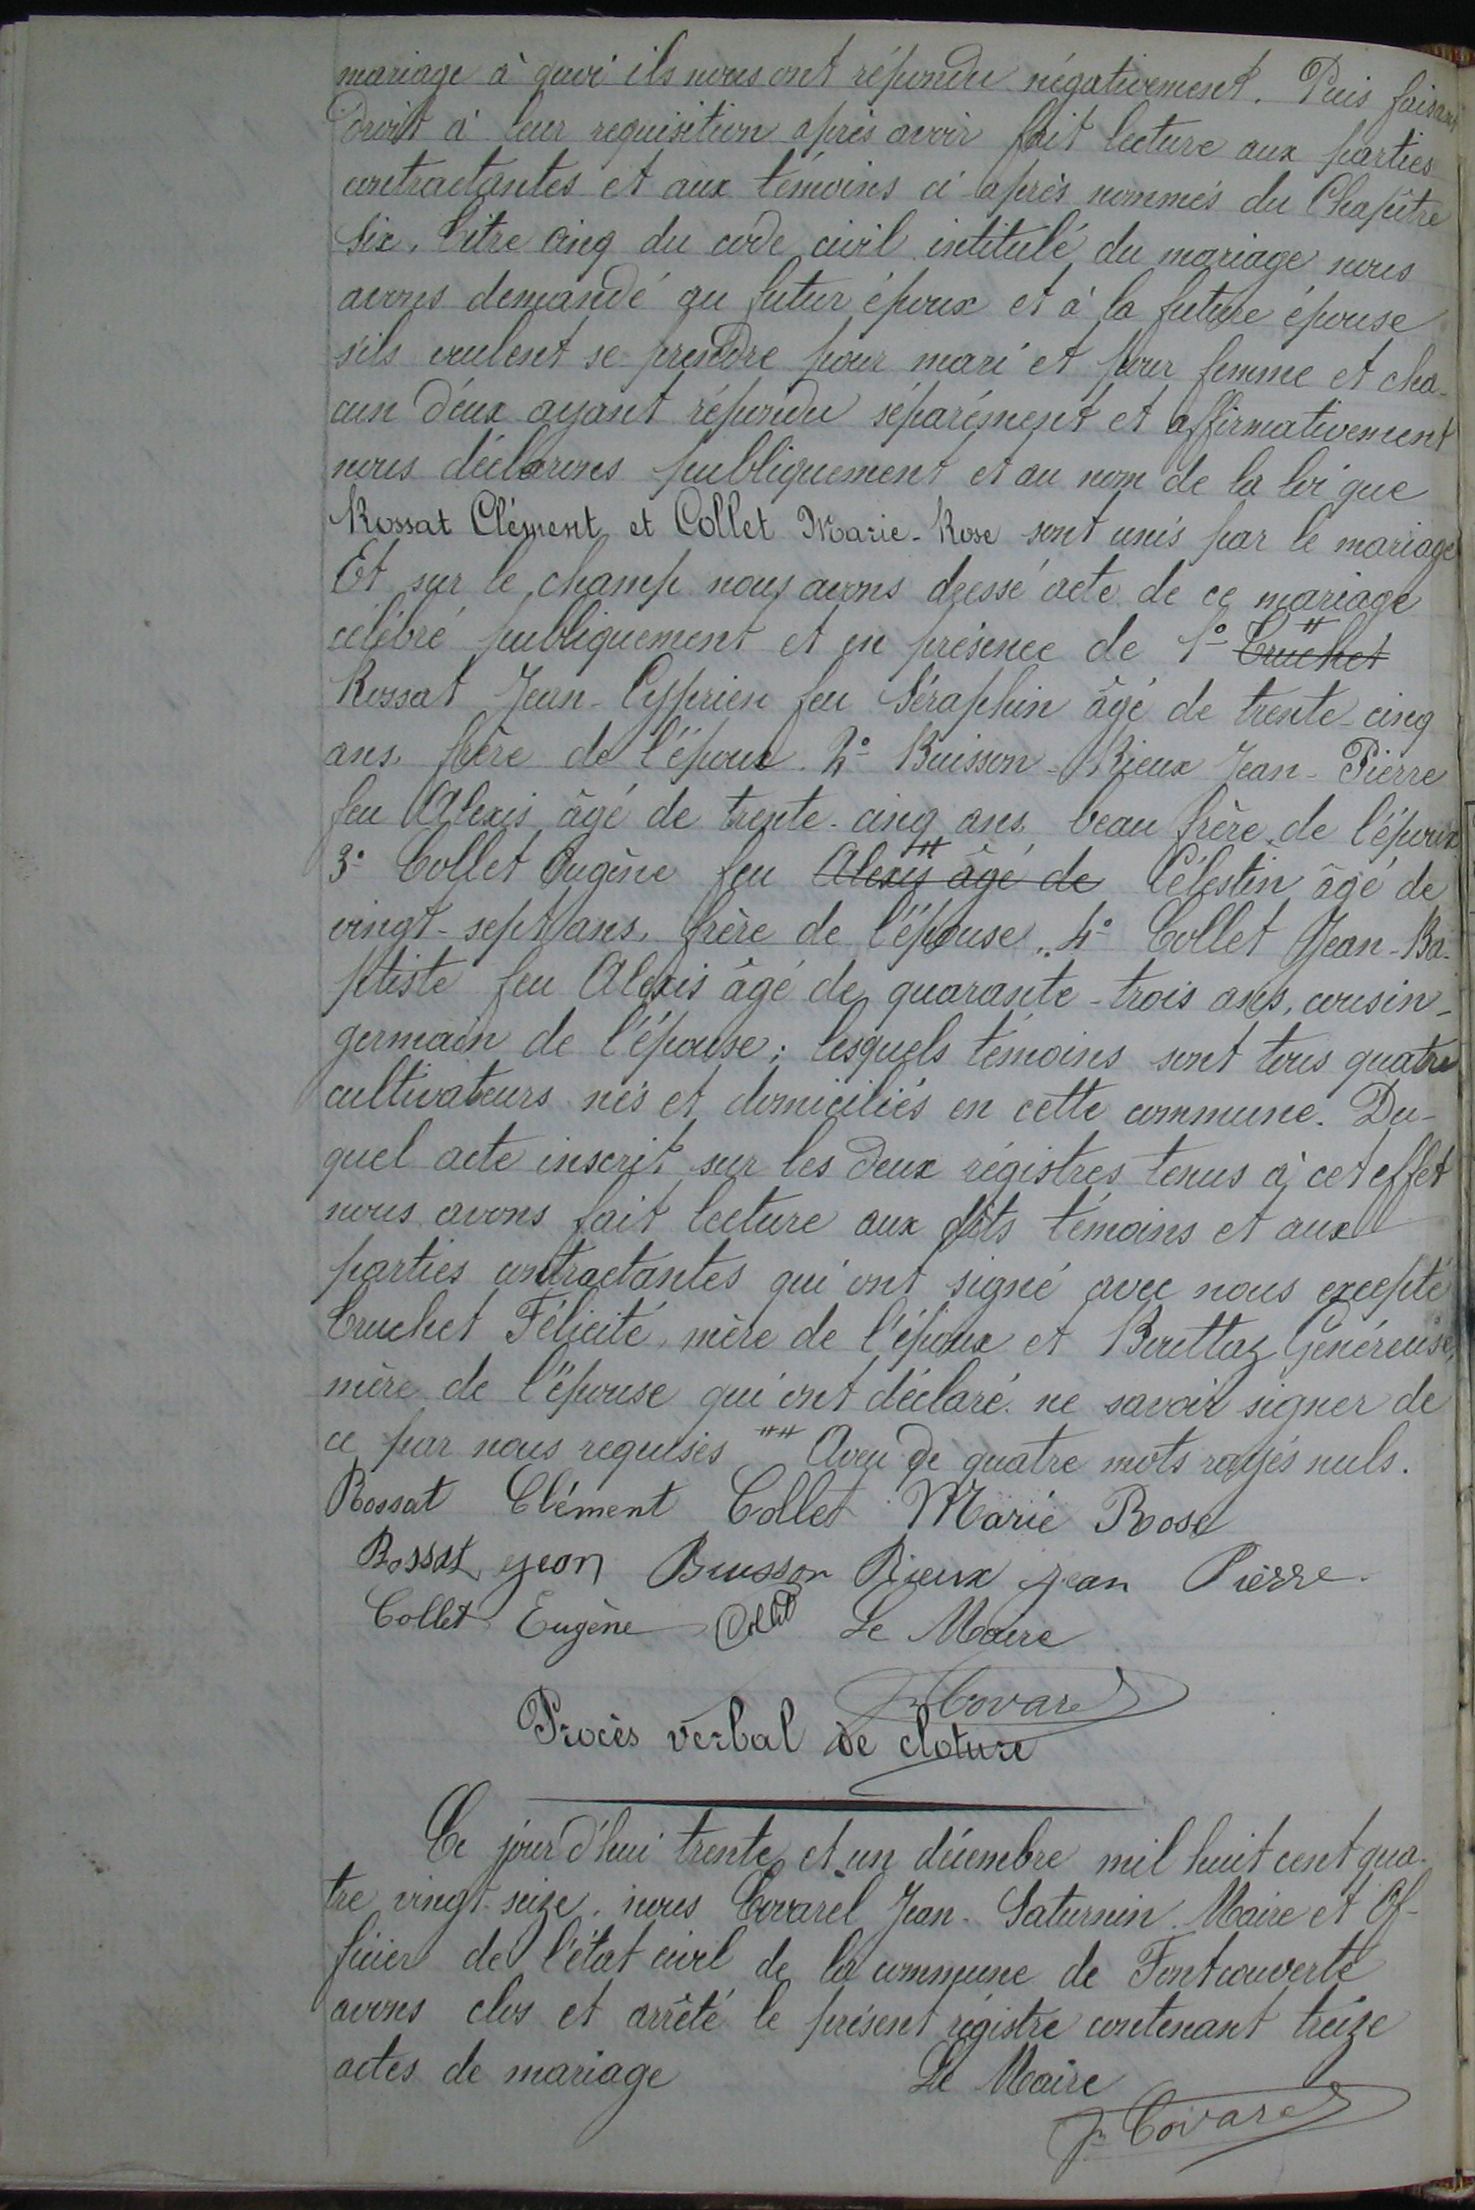 mariage à quoi ils nous ont répondu négativement. Puis faisant
droit à leur requisition après avoir fait lecture aux parties
contractantes et aux témoins ci-après nommés du Chapitre
six, titre cinq du code civil intitulé du mariage nous
avons demandé au futur époux et à la future épouse
s'ils veulent se prendre pour mari et pour femme et cha-
cun d'eux ayant répondu séparément et affirmativement
nous déclarons publiquement et au nom de la loi que
Rossat Clément et Collet Marie-Rose sont unis par le mariage
Et sur le champ nous avons dressé acte de ce mariage
célébré publiquement et en présence de 1° Cruchet
Rossat Jean-Cyprien feu Séraphin âgé de trente-cinq
ans, frère de l'époux. 2° Buisson-Rieux Jean-Pierre
feu Alexis âgé de trente-cinq ans beau frère de l'époux
3° Collet Eugène feu Alexis âgé de Célestin âgé de
vingt-sept ans, frère de l'épouse. 4° Collet Jean-Ba-
ptiste feu Alexis âgé de quarante-trois ans, cousin-
germain de l'épouse; lesquels témoins sont tous quatre
cultivateurs nés et domiciliés en cette commune. Du-
quel acte inscrit sur les deux régistres tenus à cet effet
nous avons fait lecture aux dits témoins et aux
parties contractantes qui ont signé avec nous excepté
Cruchet Félicité, mère de l'époux et Bouttaz Généreuse,
mère de l'épouse qui ont déclaré ne savoir signer de
ce par nous requises ## Aveu de quatre mots rayés nuls.
Rossat Clément Collet Marie Rose
Rossat Jean Buisson Rieux Jean Pierre
Collet Eugène Collet Le Maire
Jn Covarel
Procès verbal de cloture
Ce jour d'hui trente et un décembre mil huit cent qua-
tre vingt-seize, nous Covarel Jean-Saturnin Maire et Of-
ficier de l'état civil de la commune de Fontcouverte
avons clos et arrêté le présent régistre contenant treize
actes de mariage Le Maire
Jn Covarel